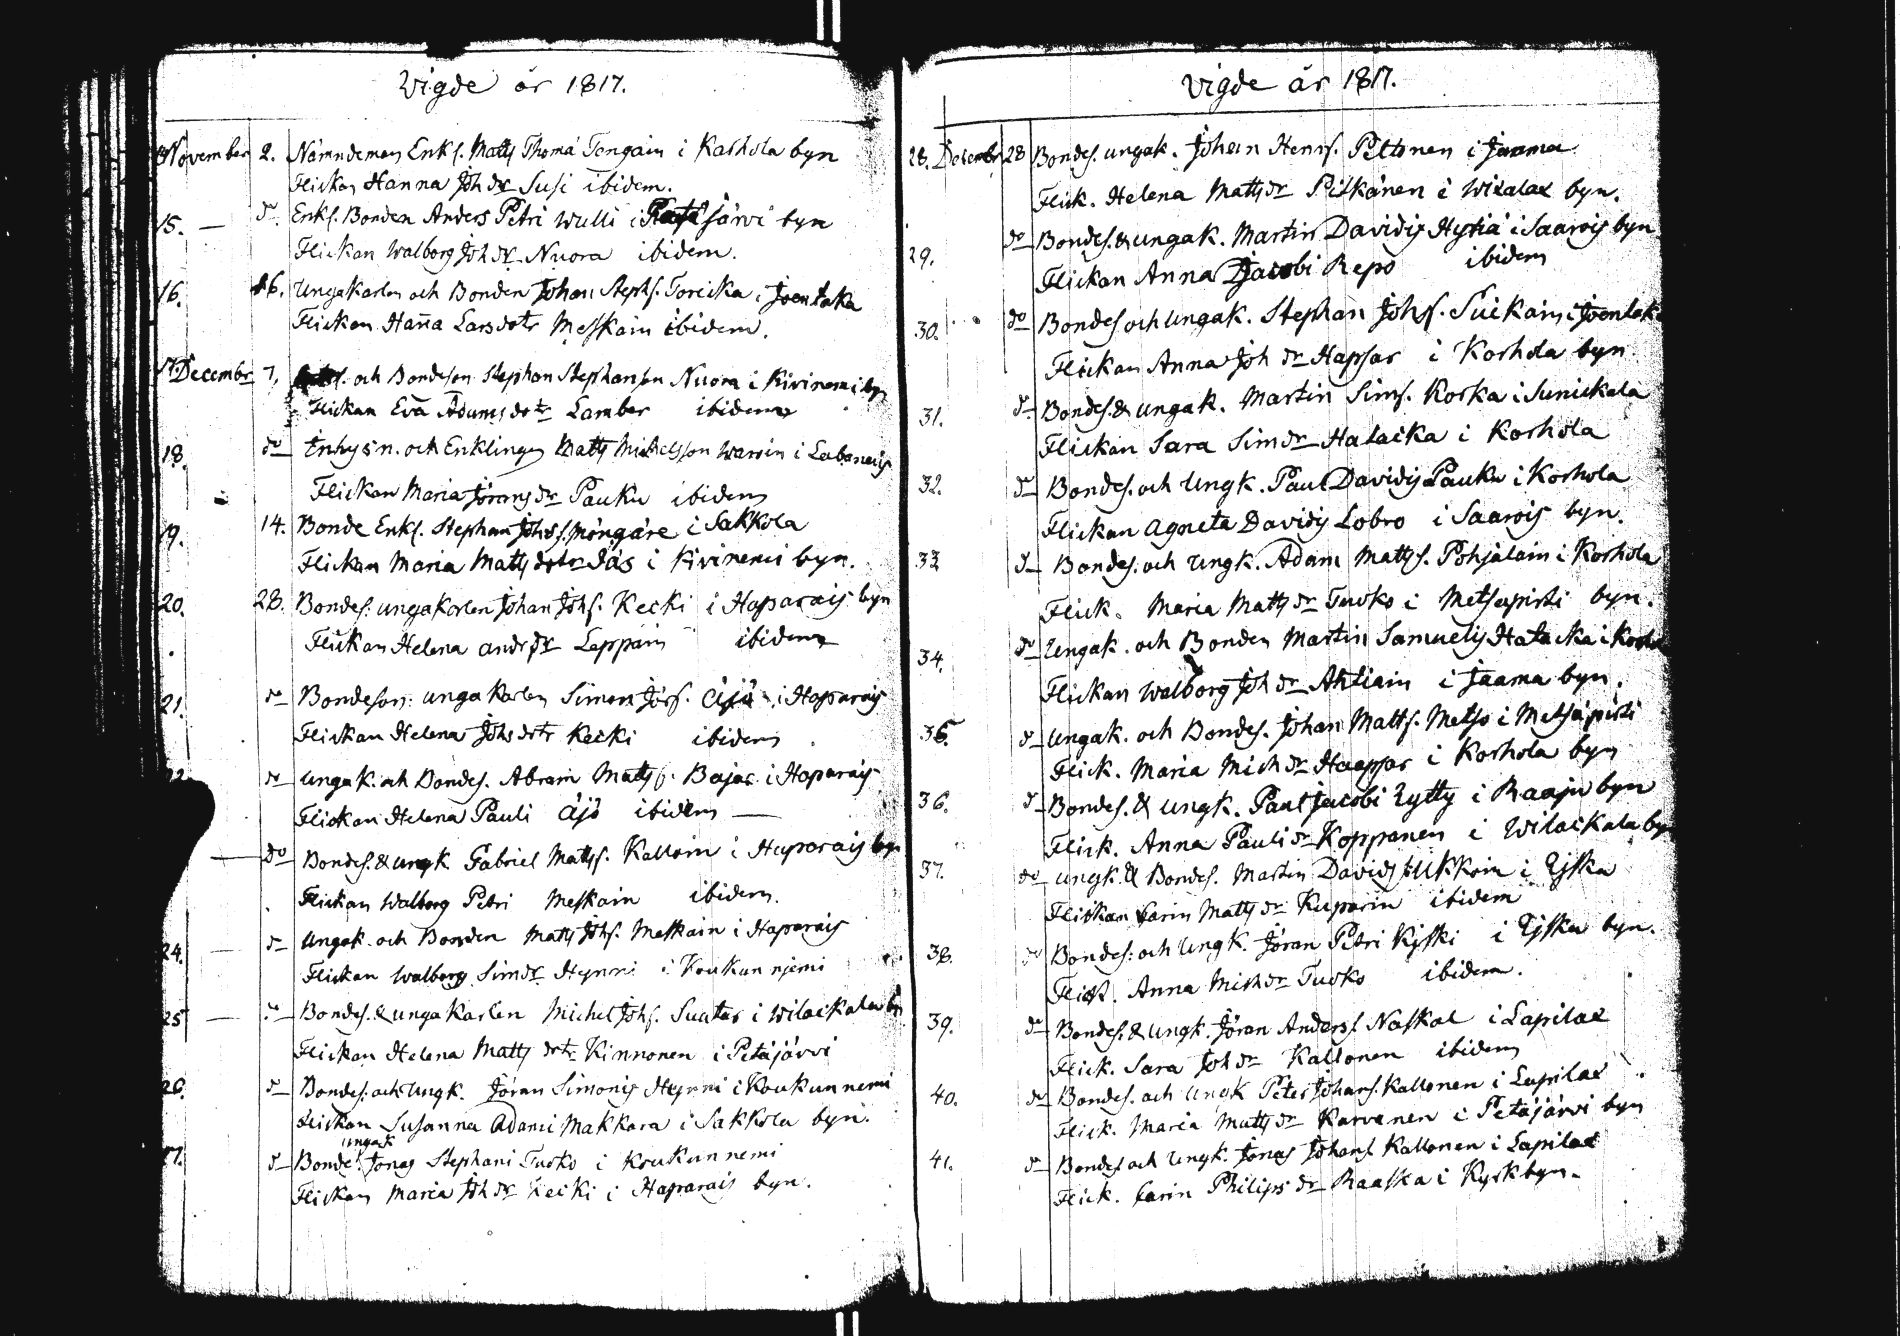 Vigde år 1817.
November 2. Nämndeman Enkl. Matts Thomæ Tengain i Karhola byn
Flickan Hanna Joh dr Susi ibidem.
15. — do Enkl. Bonden Anders Petri Wulli i Petäjärvi byn
Flickan Walborg Joh dr Nuora ibidem.
16. 16. Ungakarlen och Bonden Johan Steph. Toricka i Joentaka
Flickan Hanna Larsdotr Meskain ibidem.
17. Decembr 7. och Bondeson Stephan Stephanson Nuora i Kiviniemi byn
Flickan Eva Adams dotr Lamber ibidem
18. do Inhysn. och Enklingen Matts Michelsson Warvin i
Flickan Maria Jörans dr Pauku ibidem
19. 14. Bonde Enkl. Stephan Johs. Möngäre i Sakkola
Flickan Maria Matts dotr Jäs i Kivinemi byn.
20. 28. Bondes. ungakarlen Johan Johs. Kecki i Haparais byn
Flickan Helena andr dr Leppain ibidem
21. do Bondeson: ungakarlen Simon Jörs. Äjö i Haparais
Flickan Helena Johs dotr Kecki ibidem
do Ungak. och Bondes. Abram Matts. Bajar i Haparais
Flickan Helena Pauli Äjö ibidem —
— do Bondes. & ungk Gabriel Matts. Kalloin i Haparais byn
Flickan Walborg Petri Meskain ibidem.
24. — do Ungak. och Bonden Matts Johs. Meskain i Haparais
Flickan Walborg Sim dr Hynni i Koukunnjemi
25 — do Bondes. & ungakarlen Michel Johs. Suatar i Wilackala by
Flickan Helena Matts dotr Kinnonen i Petäjärvi
26. do Bondes. och Ungk. Jöran Simonis Hynni i Koukunnemi
Flickan Susanna Adami Makkara i Sakkola byn.
ungak
27. do Bondes. Jonas Stephani Tuoko i Koukunnemi
Flickan Maria Joh dr Kecki i Haparais byn.
Vigde år 1817.
28. Decembr 28 Bondes. ungak. Johan Henrs. Peltonen i Jaama
Flick. Helena Matts dr Pitkänen i Wiralax byn.
29. do Bondes. & ungak. Martin Davidis Hytiä i Saarois byn
Flickan Anna Jacobi Repo ibidem
30. do Bondes. och Ungak. Stephan Johs. Suikain i Joentaka
Flickan Anna Joh dr Hapsar i Korhola byn
31. do Bondes. & ungak. Martin Sims. Korka i Sunickala
Flickan Sara Sim dr Halacka i Korhola
32. do Bondes. och Ungk. Paul Davidis Pauku i Korhola
Flickan Agneta Davidis Lobro i Saarois byn.
33 do Bondes. och Ungk. Adam Matts. Pohjalain i Korhola
Flick. Maria Matts dr Tuoko i Metsäpirti byn.
34. do Ungak. och Bonden Martin Samuelis Hatacka i
Flickan Walborg Joh dr Ahtiain i Jaama byn.
35. do Ungak. och Bondes. Johan Matts. Metso i Metsäpirti
Flick. Maria Mich dr Haapsar i Korhola byn
36. do Bondes. & ungk. Paul Jacobi Rytty i Raaju byn
Flick. Anna Pauli dr Koppanen i Wilackala by
37. do ungk. & Bondes. Martin Davids. Ukkoin i Ejska
Flickan Carin Matts dr Kuparin ibidem
38. do Bondes: och Ungk. Jöran Petri Kiski i Ejska byn.
Flick. Anna Mich dr Tuoko ibidem.
39. do Bondes. & Ungk. Jöran Anders. Naskal i Lapilax
Flick. Sara Joh dr Kallonen ibidem
40. do Bondes. och Ungk Peter Johans. Kallonen i Lapilax
Flick. Maria Matts dr Karvanen i Petäjärvi byn
41. do Bondes. och Ungk. Jonas Johans. Kallonen i Lapilax
Flick. Carin Philips dr Raaska i Kyrkbyn.